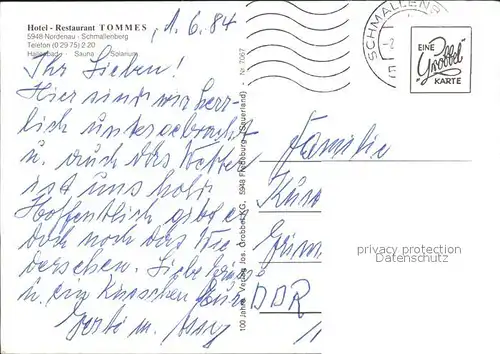 Hotel - Restaurant TOMMES
5948 Nordenau - Schmallenberg
Telefon (0 29 75) 2 20
Hallenbad - Sauna - Solarium
1.6.84
Ihr Lieben!
Hier sind wir herr-
lich untergebracht
u. auch das Wetter
ist uns hold.
Hoffentlich gibt es
doch noch das Wie
dersehen. Liebe Grüße
u. ein Küsschen Eure
Gerti u.
Nr. 7067
100 Jahre Verlag Jos. Grobbel KG, 5948 Fredeburg (Sauerland)
SCHMALLENB
EINE
Grobbel
KARTE
Familie
DDR
privacy protection
Datenschutz